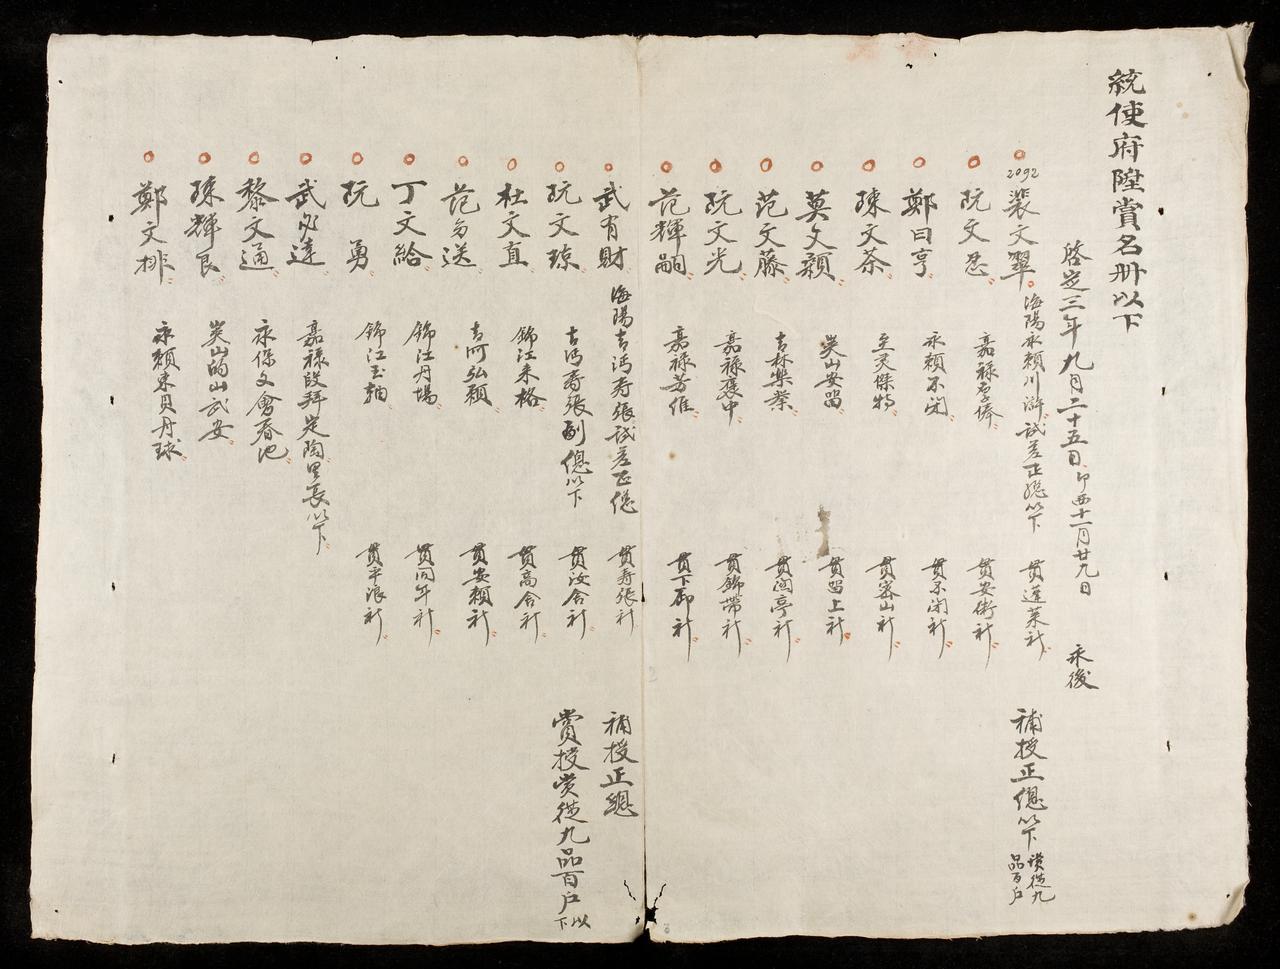 統使府陞賞名冊以下
啓定三年九月二十五日即西十一月廿九日 承後
2092
裴文翠 海陽永賴川滸試差正總以下 貫蓬萊社 補授正總以下 讃從九品百戶
阮文忍 嘉祿 貫安衛社
鄭曰亨 永賴不閉 貫不閉社
陳文茶 至灵傑特 貫密山社
莫文穎 荚山安留 貫留上社
范文藤 青林樂業 貫閭亭社
阮文光 嘉祿襃中 貫錦帶社
范輝嗣 嘉祿芳值 貫下邴社
武有財 海陽青沔寿張試差正總 貫寿張社 補授正總
阮文琼 青沔寿張副總以下 貫汝舍社 賞授賞從九品百戶以下
杜文直 錦江来格 貫高舍社
范多送 青河弘穎 貫安穎社
丁文給 錦江丹場 貫向午社
阮勇 錦江玉軸 貫平浪社
武 達 嘉祿段拜足陶里長以下
黎文通 永保文會春池
陳輝良 荚山的山武安
鄭文排 永賴東貝丹球